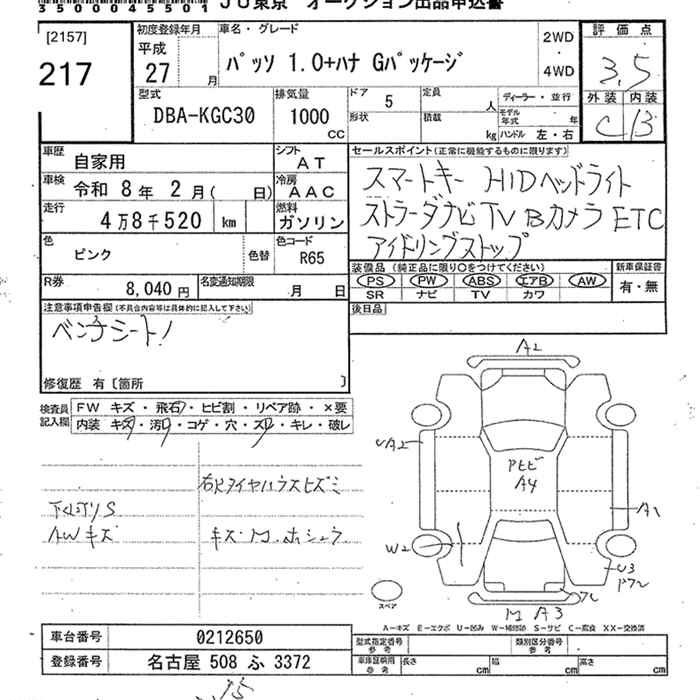 35000455501 JU東京 オークション出品申込書
[2157]
217
初度登録年月
平成
27 月
車名・グレード
パッソ 1.0+ハナ Gパッケージ
2WD
・
4WD
評価点
3,5
外装 内装
C B
型式
DBA-KGC30
排気量
1000
CC
ドア 5
形状
定員 人
積載 kg
ディーラー・並行
モデル年式 年
ハンドル 左・右
車歴 自家用
シフト AT
車検 令和 8年 2月( 日)
冷房 AAC
走行 4万8千520 km
燃料 ガソリン
色 ピンク 色替
色コード R65
R券 8,040円
名変通知期限 月 日
セールスポイント(正常に機能するものに限ります)
スマートキー HIDヘッドライト
ストラーダナビ TV Bカメラ ETC
アイドリングストップ
装備品(純正品に限り○をつけてください)
PS PW ABS エアB AW
SR ナビ TV カワ
新車保証書
有・無
後日品
注意事項申告欄(不具合内容等は具体的に記入して下さい)
ベンチシート!
修復歴 有〔箇所 〕
検査員記入欄
FW キズ・飛石・ヒビ割・リペア跡・×要
内装 キズ・汚れ・コゲ・穴・スレ・キレ・破レ
右リタイヤハウスヒズミ
下回りS
AWキズ
A2
UA2
A4
A1
W2
U3
M A3
スペア
A-キズ E-エクボ U-凹み W-補修跡 S-サビ C-腐食 XX-交換済
車台番号 0212650
登録番号 名古屋 508 ふ 3372
型式指定番号
参考
類別区分番号
参考
車庫証明用
参考
長さ cm 幅 cm 高さ cm